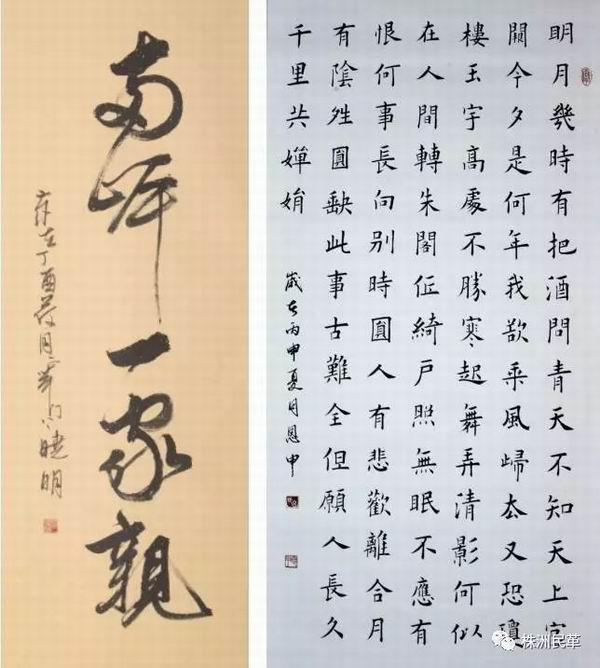 兩岸一家親
歲在丁酉荷月 曉明
明月幾時有把酒問青天不知天上宮
闕今夕是何年我欲乘風歸去又恐瓊
樓玉宇高處不勝寒起舞弄清影何似
在人間轉朱閣低綺戶照無眠不應有
恨何事長向别時圓人有悲歡離合月
有陰晴圓缺此事古難全但願人長久
千里共嬋娟
歲在丙申夏月恩申
株洲民革